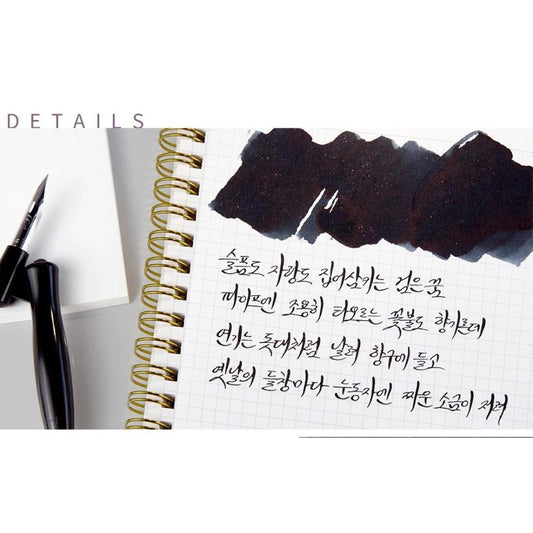 DETAILS
슬픔도 자랑도 집어삼키는 검은 꿈
파이프엔 조용히 타오르는 꽃불도 향기론데
연기는 돛대처럼 날려 항구에 들고
옛날의 들창마다 눈동자엔 짜운 소금이 저려